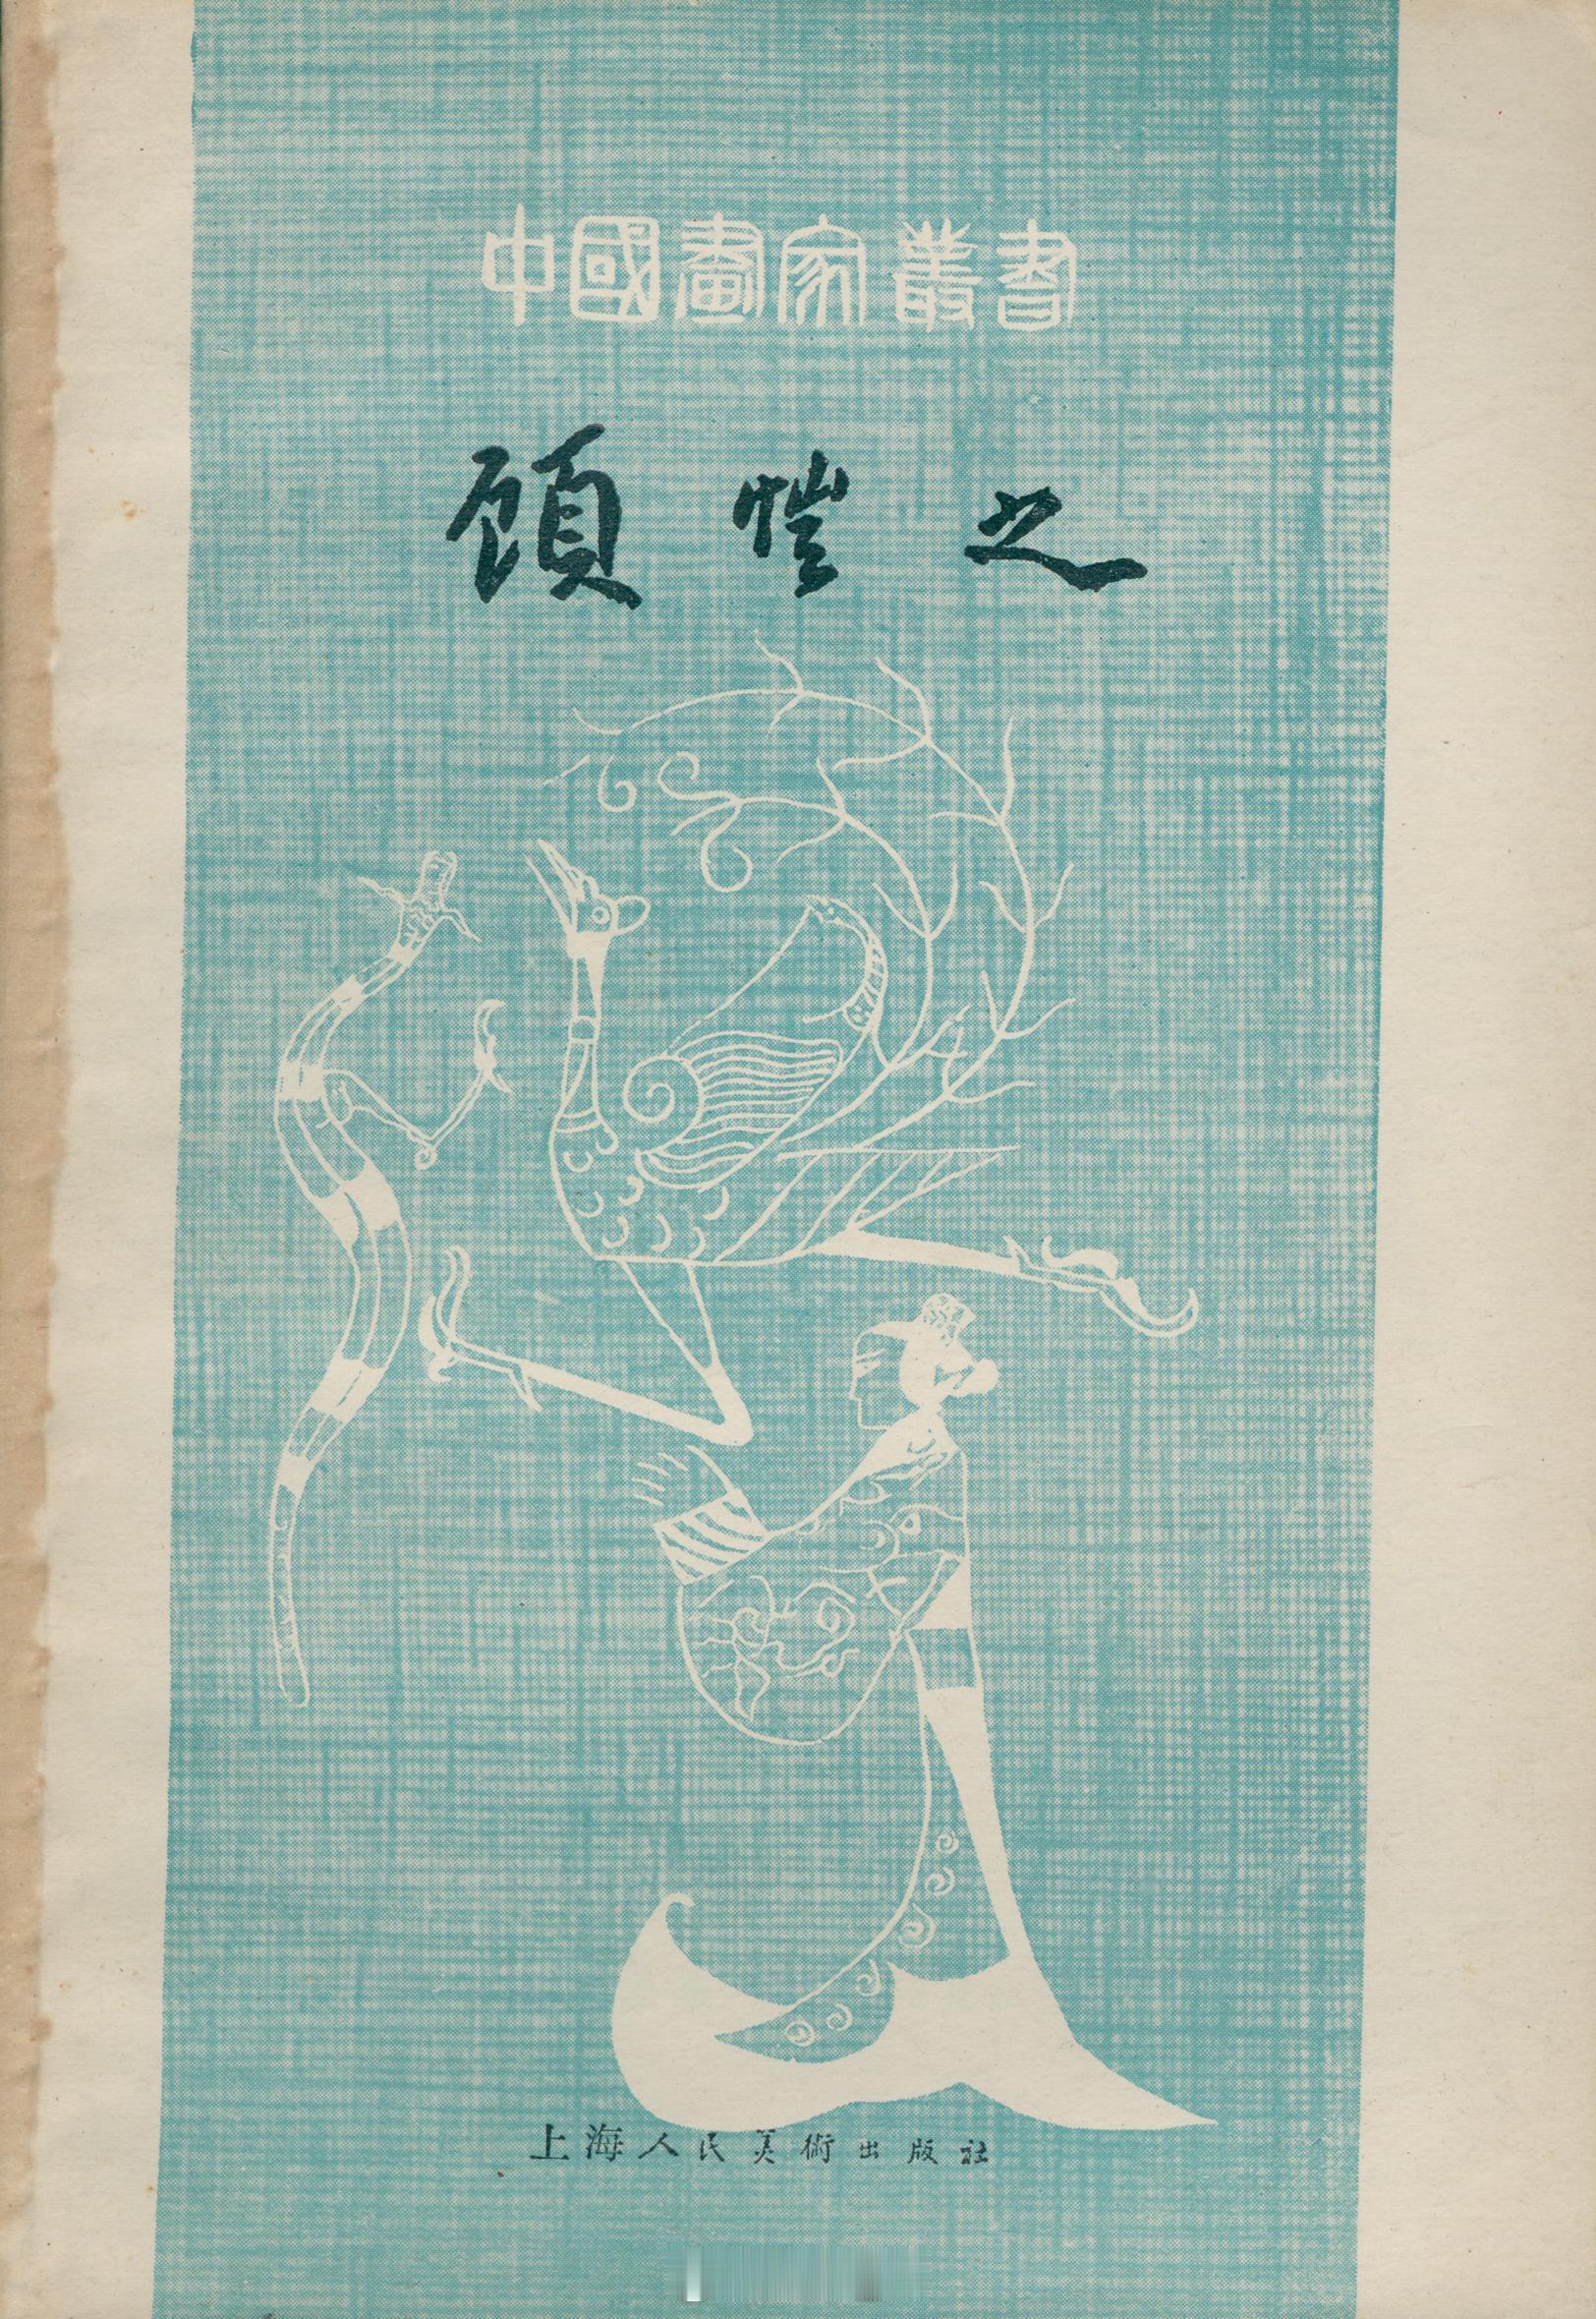 中國畫家叢書
顧愷之
上海人民美術出版社